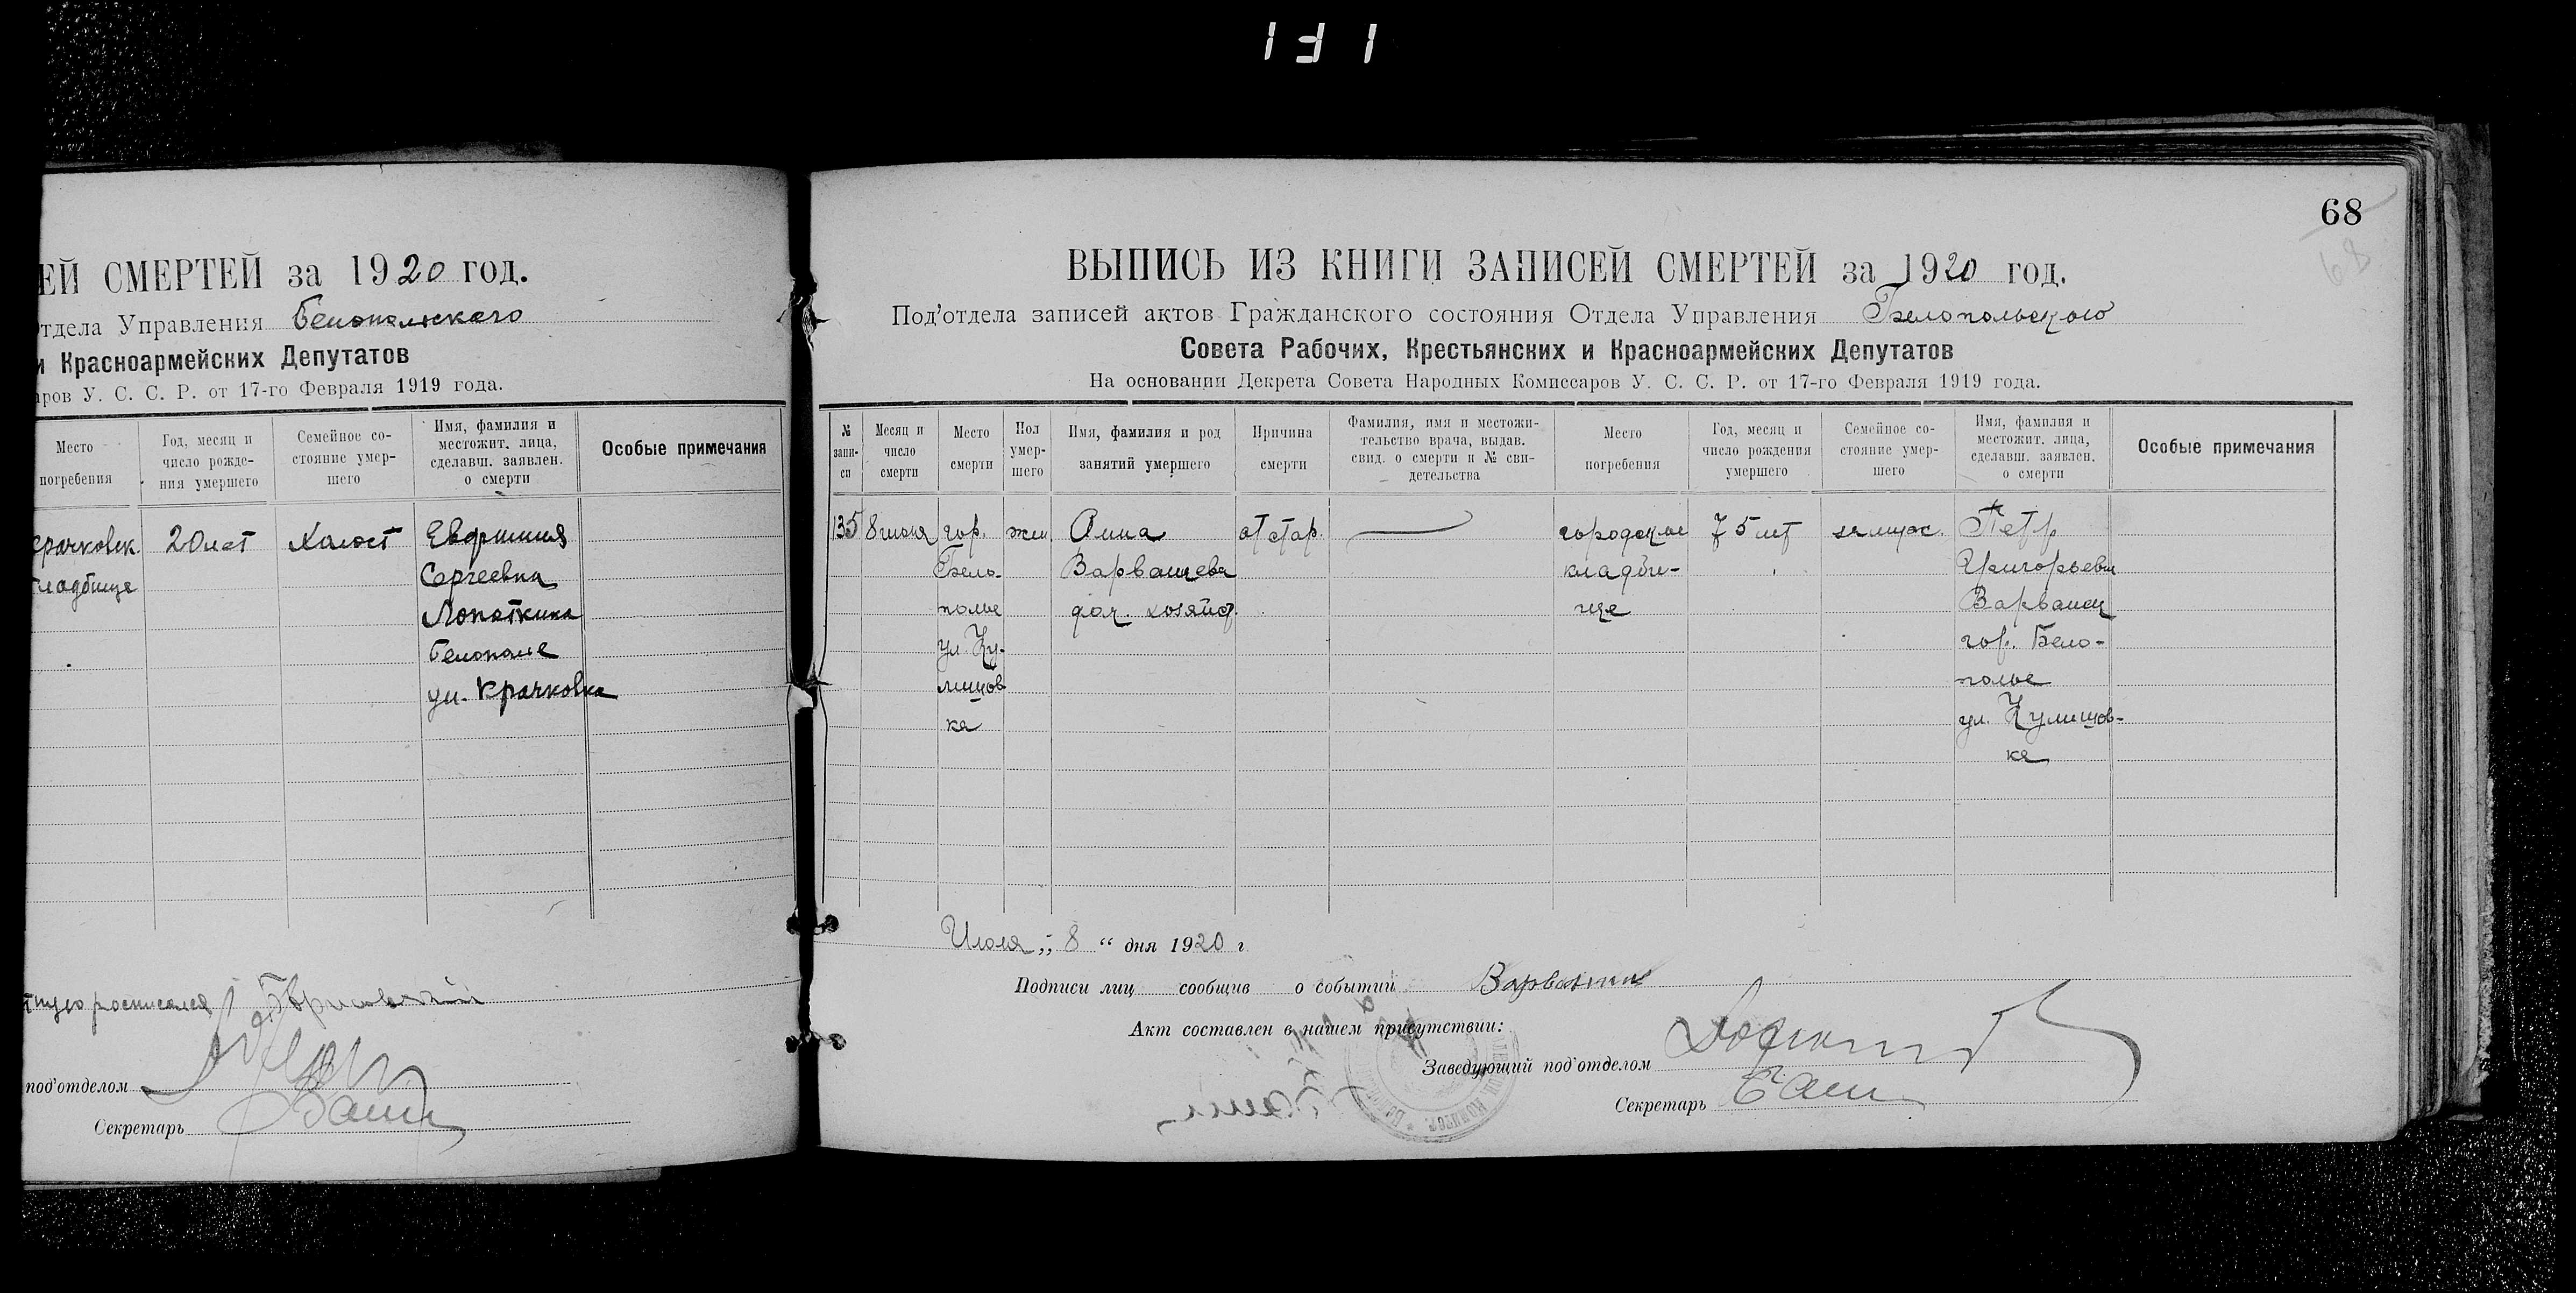 131
ЕЙ СМЕРТЕЙ за 1920 год.
Отдела Управления Белопольского
и Красноармейских Депутатов
аров У. С. С. Р. от 17-го Февраля 1919 года.
Место погребения
Год, месяц и число рожде- ния умершего
Семейное со- стояние умер- шего
Имя, фамилия и местожит. лица, сделавш. заявлен. о смерти
Особые примечания
20 лет Холост Евфимия
кладбище Сергеевна
Лопаткина
Белополье
ул. Крачковка
под'отделом
Секретарь
68
68
ВЫПИСЬ ИЗ КНИГИ ЗАПИСЕЙ СМЕРТЕЙ за 1920 год.
Под'отдела записей актов Гражданского состояния Отдела Управления Белопольского
Совета Рабочих, Крестьянских и Красноармейских Депутатов
На основании Декрета Совета Народных Комиссаров У. С. С. Р. от 17-го Февраля 1919 года.
№ запи- си
Месяц и число смерти
Место смерти
Пол умер- шего
Имя, фамилия и род занятий умершего
Причина смерти
Фамилия, имя и местожи- тельство врача, выдав. свид. о смерти и № сви- детельства
Место погребения
Год, месяц и число рождения умершего
Семейное со- стояние умер- шего
Имя, фамилия и местожит. лица, сделавш. заявлен. о смерти
Особые примечания
135 8 июля гор. жен Анна от стар. городское 75 лет замуж. Петр
Бело- кладби- Григорьевич
полье дом. хозяйст. ще Варванец
ул. Ку- гор. Бело-
лишов полье
ка ул. Кулишов-
ка
Июля „ 8 “ дня 1920 г
Подписи лиц сообщив о событии
Акт составлен в нашем присутствии:
Заведующий под'отделом
Секретарь